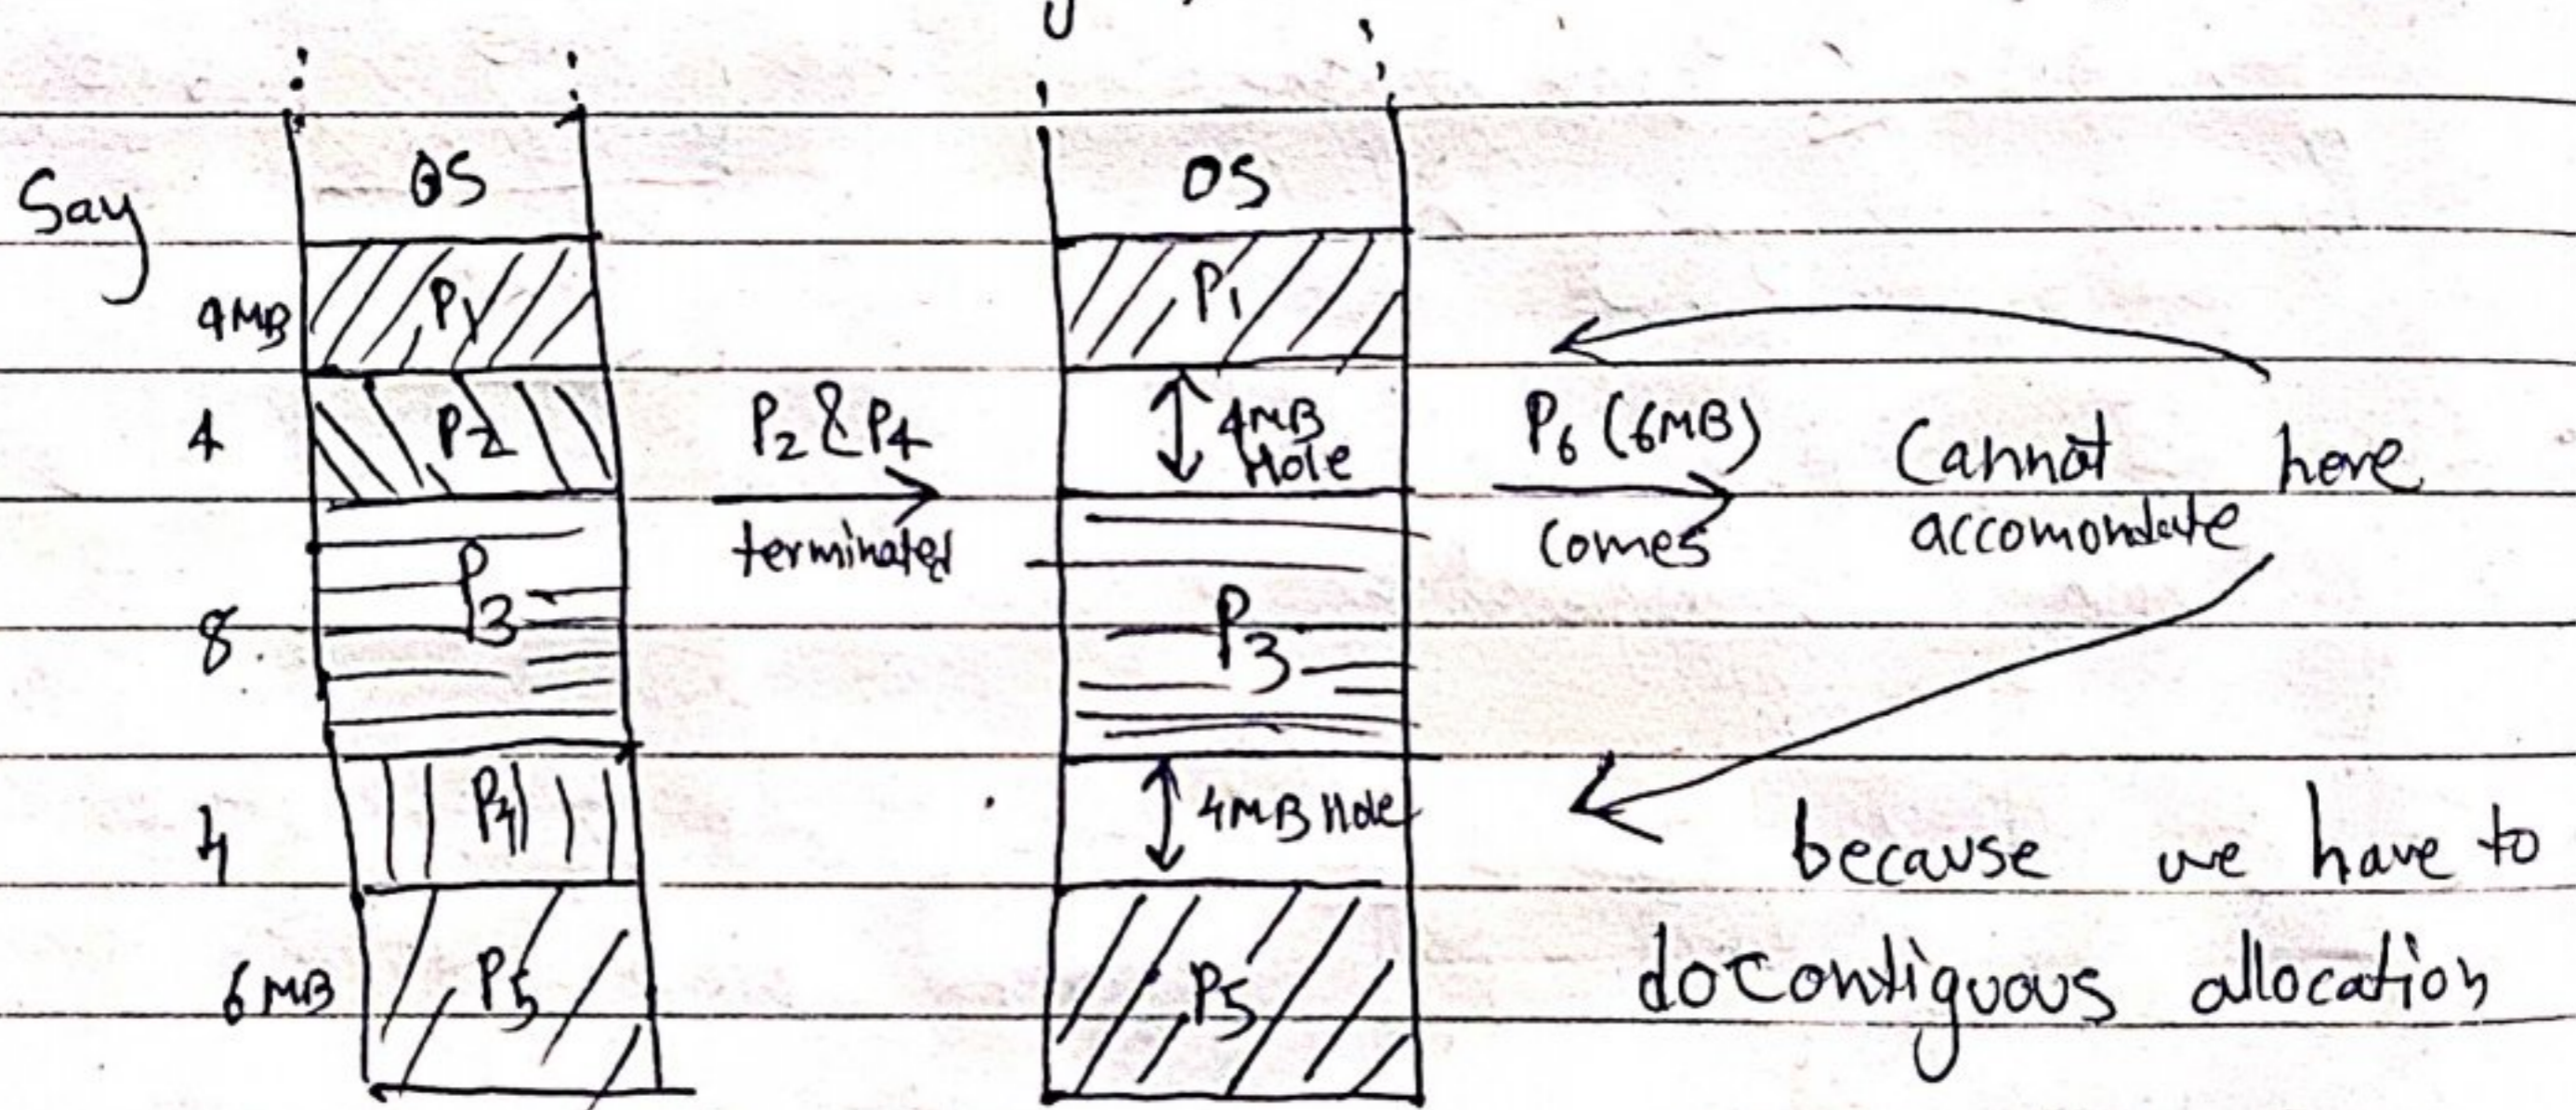 Say
OS
4MB P1
4 P2
8 P3
4 P4
6MB P5
P2 & P4
terminated
OS
P1
4MB
Hole
P3
4MB Hole
P5
P6 (6MB)
comes
Cannot here
accomondate
because we have to
do contiguous allocation